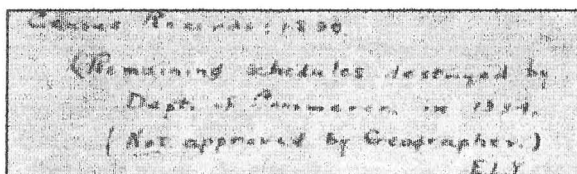 Census Records: 1890
(Remaining schedules destroyed by
Dept. of Commerce in 1934.
(Not approved by Geographer.)
ELY